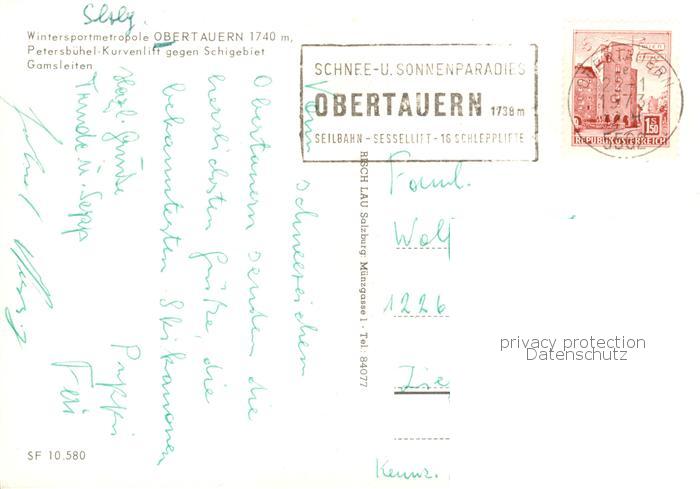 Slzbg.
Wintersportmetropole OBERTAUERN 1740 m,
Petersbühel-Kurvenlift gegen Schigebiet
Gamsleiten
SCHNEE-U. SONNENPARADIES
OBERTAUERN 1738 m
SEILBAHN - SESSELLIFT - 16 SCHLEPPLIFTE
OBERTAUERN
1973
5562
WIEN
1.50
REPUBLIK ÖSTERREICH
Vom schneereichen
Obertauern senden die
herzlichsten Grüße, die
bekanntesten Skikanonen
Puppi
Feri
Herzl. Grüße
Trude u. Sepp
RISCH LAU Salzburg Münzgasse 1 · Tel: 84077
Faml.
Wolf
1226
Kennz.
privacy protection
Datenschutz
SF 10.580